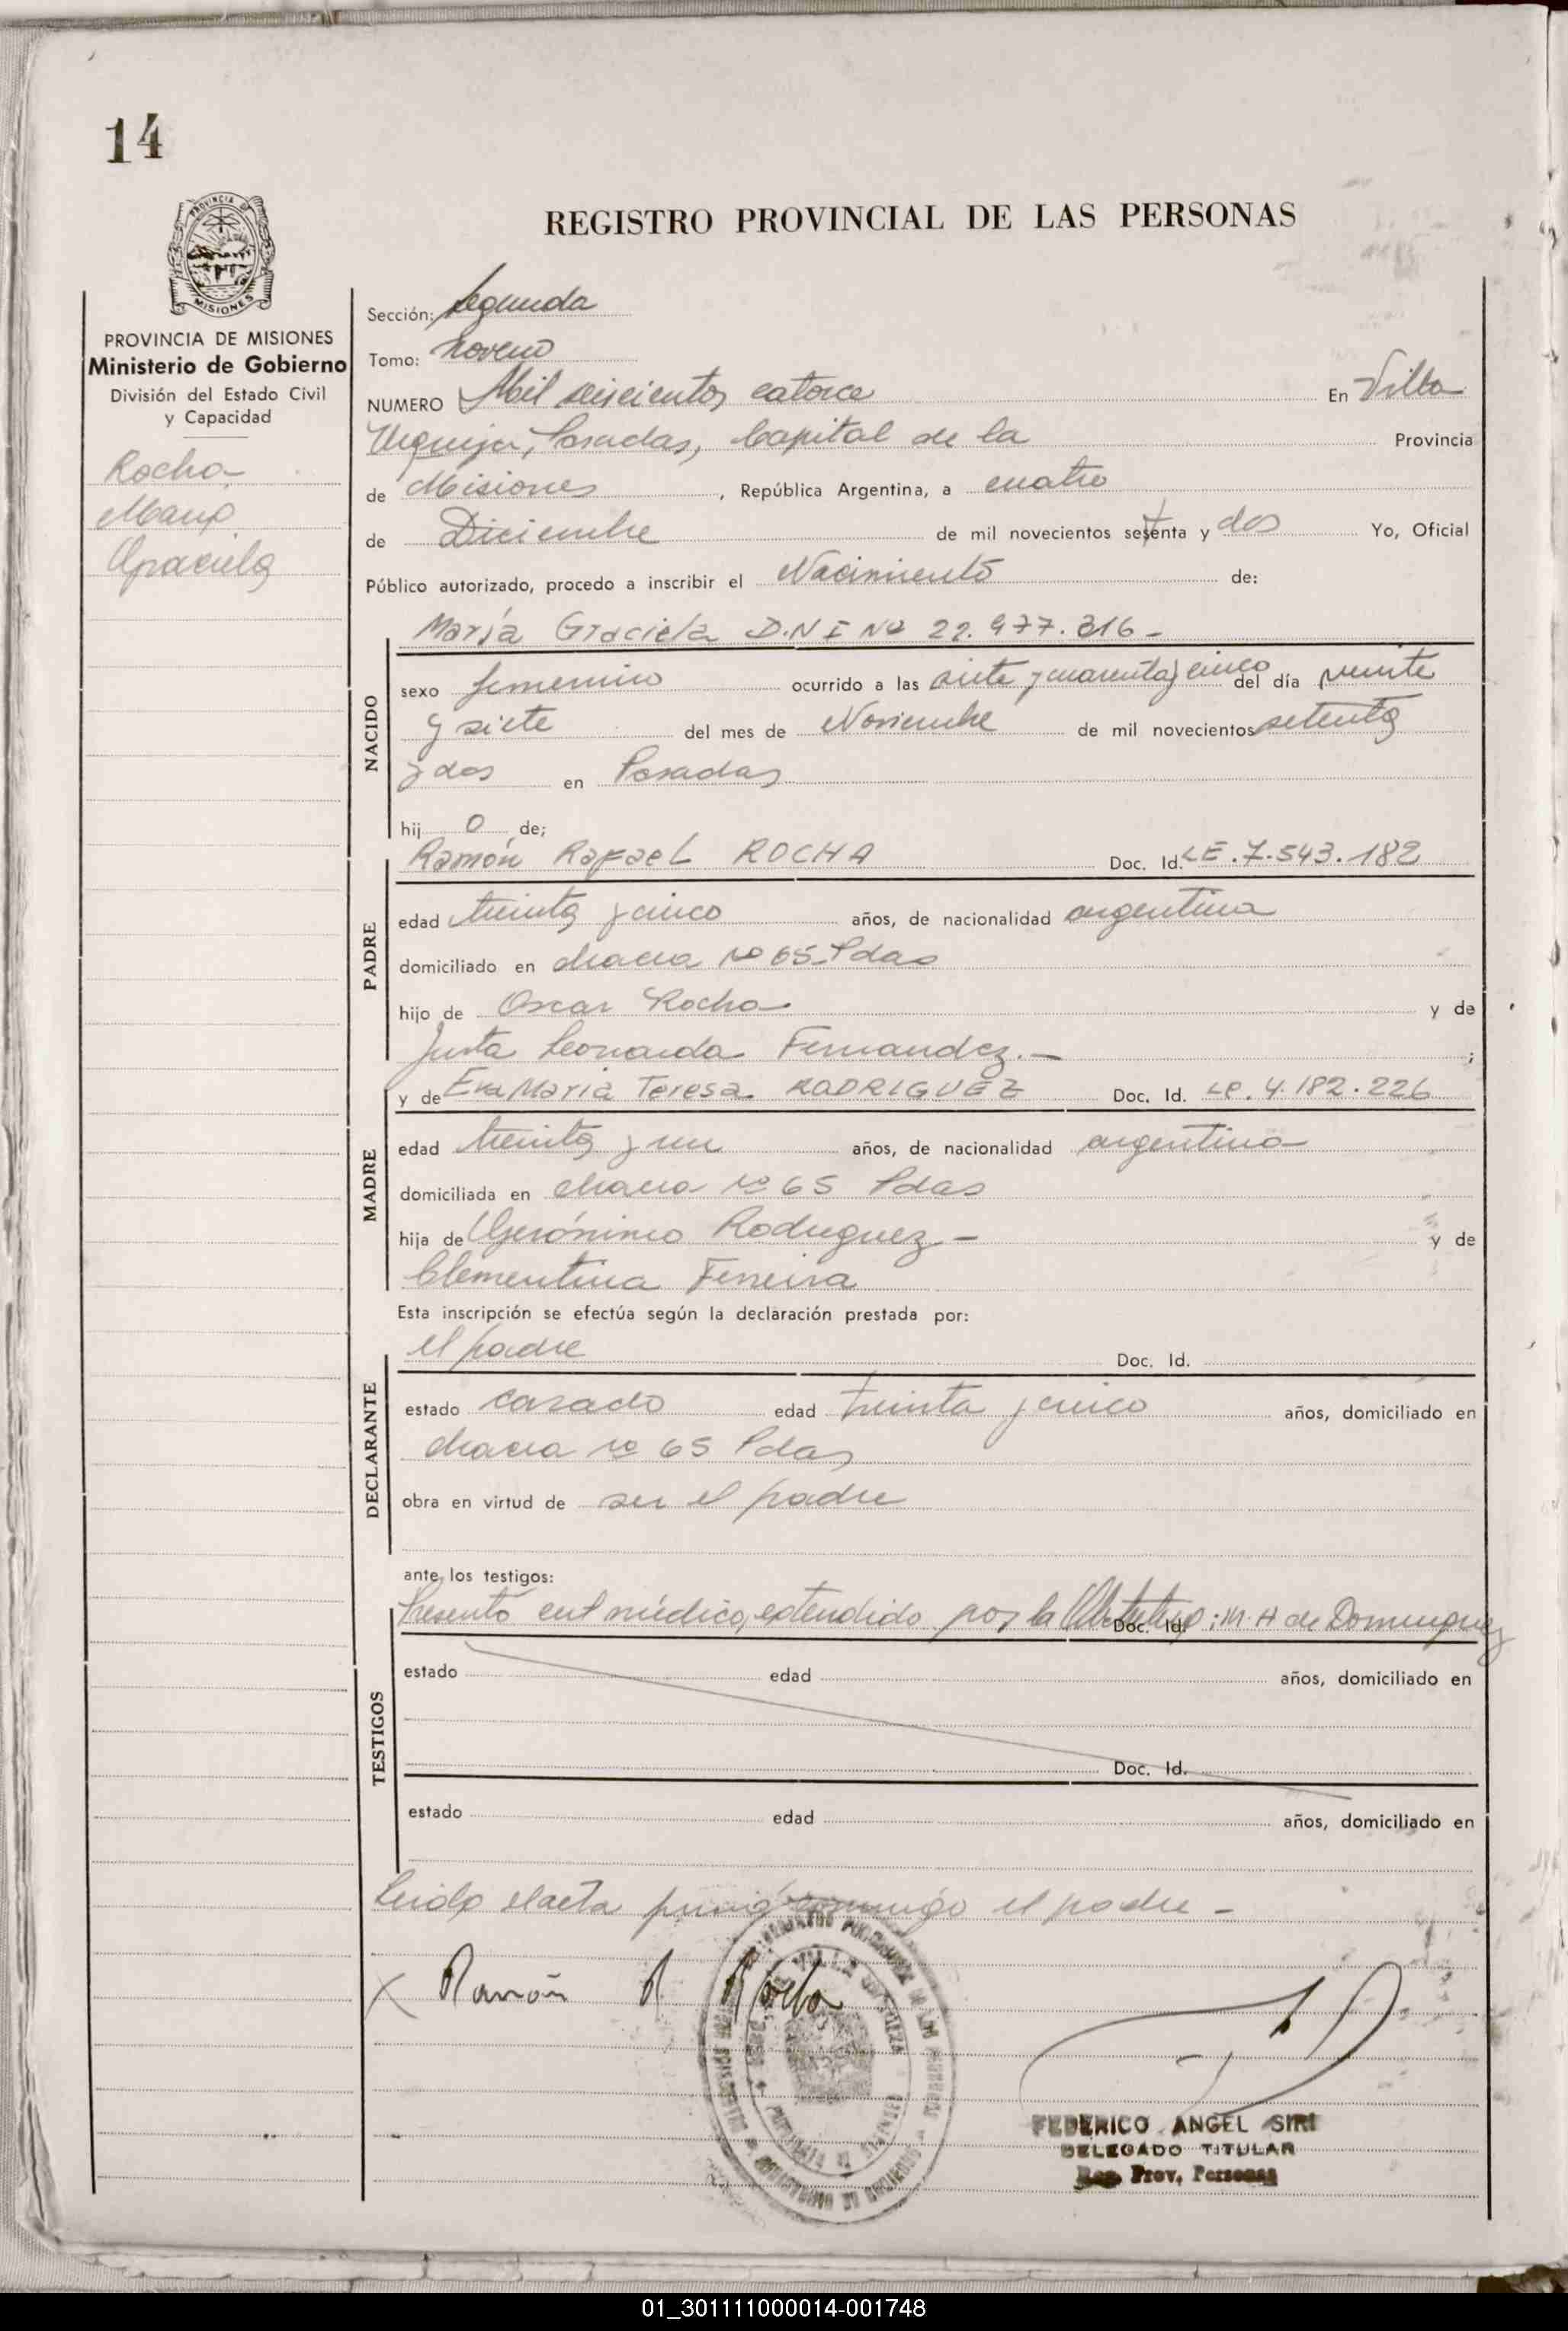 14
PROVINCIA DE MISIONES
MISIONES
PROVINCIA DE MISIONES
Ministerio de Gobierno
División del Estado Civil
y Capacidad
Rocha
Maria
Graciela
REGISTRO PROVINCIAL DE LAS PERSONAS
Sección: Segunda
Tomo: Noveno
NUMERO Mil seiscientos catorce En Villa
Urquiza, Posadas, Capital de la Provincia
de Misiones, República Argentina, a cuatro
de Diciembre de mil novecientos setenta y dos Yo, Oficial
Público autorizado, procedo a inscribir el Nacimiento de:
María Graciela D.N.I Nº 22.977.316-
NACIDO
sexo femenino ocurrido a las siete y cuarenta y cinco del día veinte
y siete del mes de Noviembre de mil novecientos setenta
y dos en Posadas
hij o de;
Ramón Rafael ROCHA Doc. Id. LE.7.543.182
PADRE
edad treinta y cinco años, de nacionalidad argentina
domiciliado en chacra nº 65-Pdas
hijo de Oscar Rocha y de
Justa Leonarda Fernandez.- ;
y de Eva Maria Teresa RODRIGUEZ Doc. Id. LC. 4.182.226
MADRE
edad treinta y un años, de nacionalidad argentina
domiciliada en chacra nº 65 Pdas
hija de Gerónimo Rodriguez - y de
Clementina Ferreira
Esta inscripción se efectúa según la declaración prestada por:
el padre Doc. Id.
DECLARANTE
estado casado edad treinta y cinco años, domiciliado en
chacra nº 65 Pdas
obra en virtud de ser el padre
ante los testigos:
Presentó cert médico, extendido por la Obstetra: M.H de Dominguez Doc. Id.
TESTIGOS
estado edad años, domiciliado en
Doc. Id.
estado edad años, domiciliado en
Leida el acta firmó conmigo el padre -
X Ramón R Rocha
FEDERICO ANGEL SIRI
DELEGADO TITULAR
Reg. Prov. Personas
01_301111000014-001748